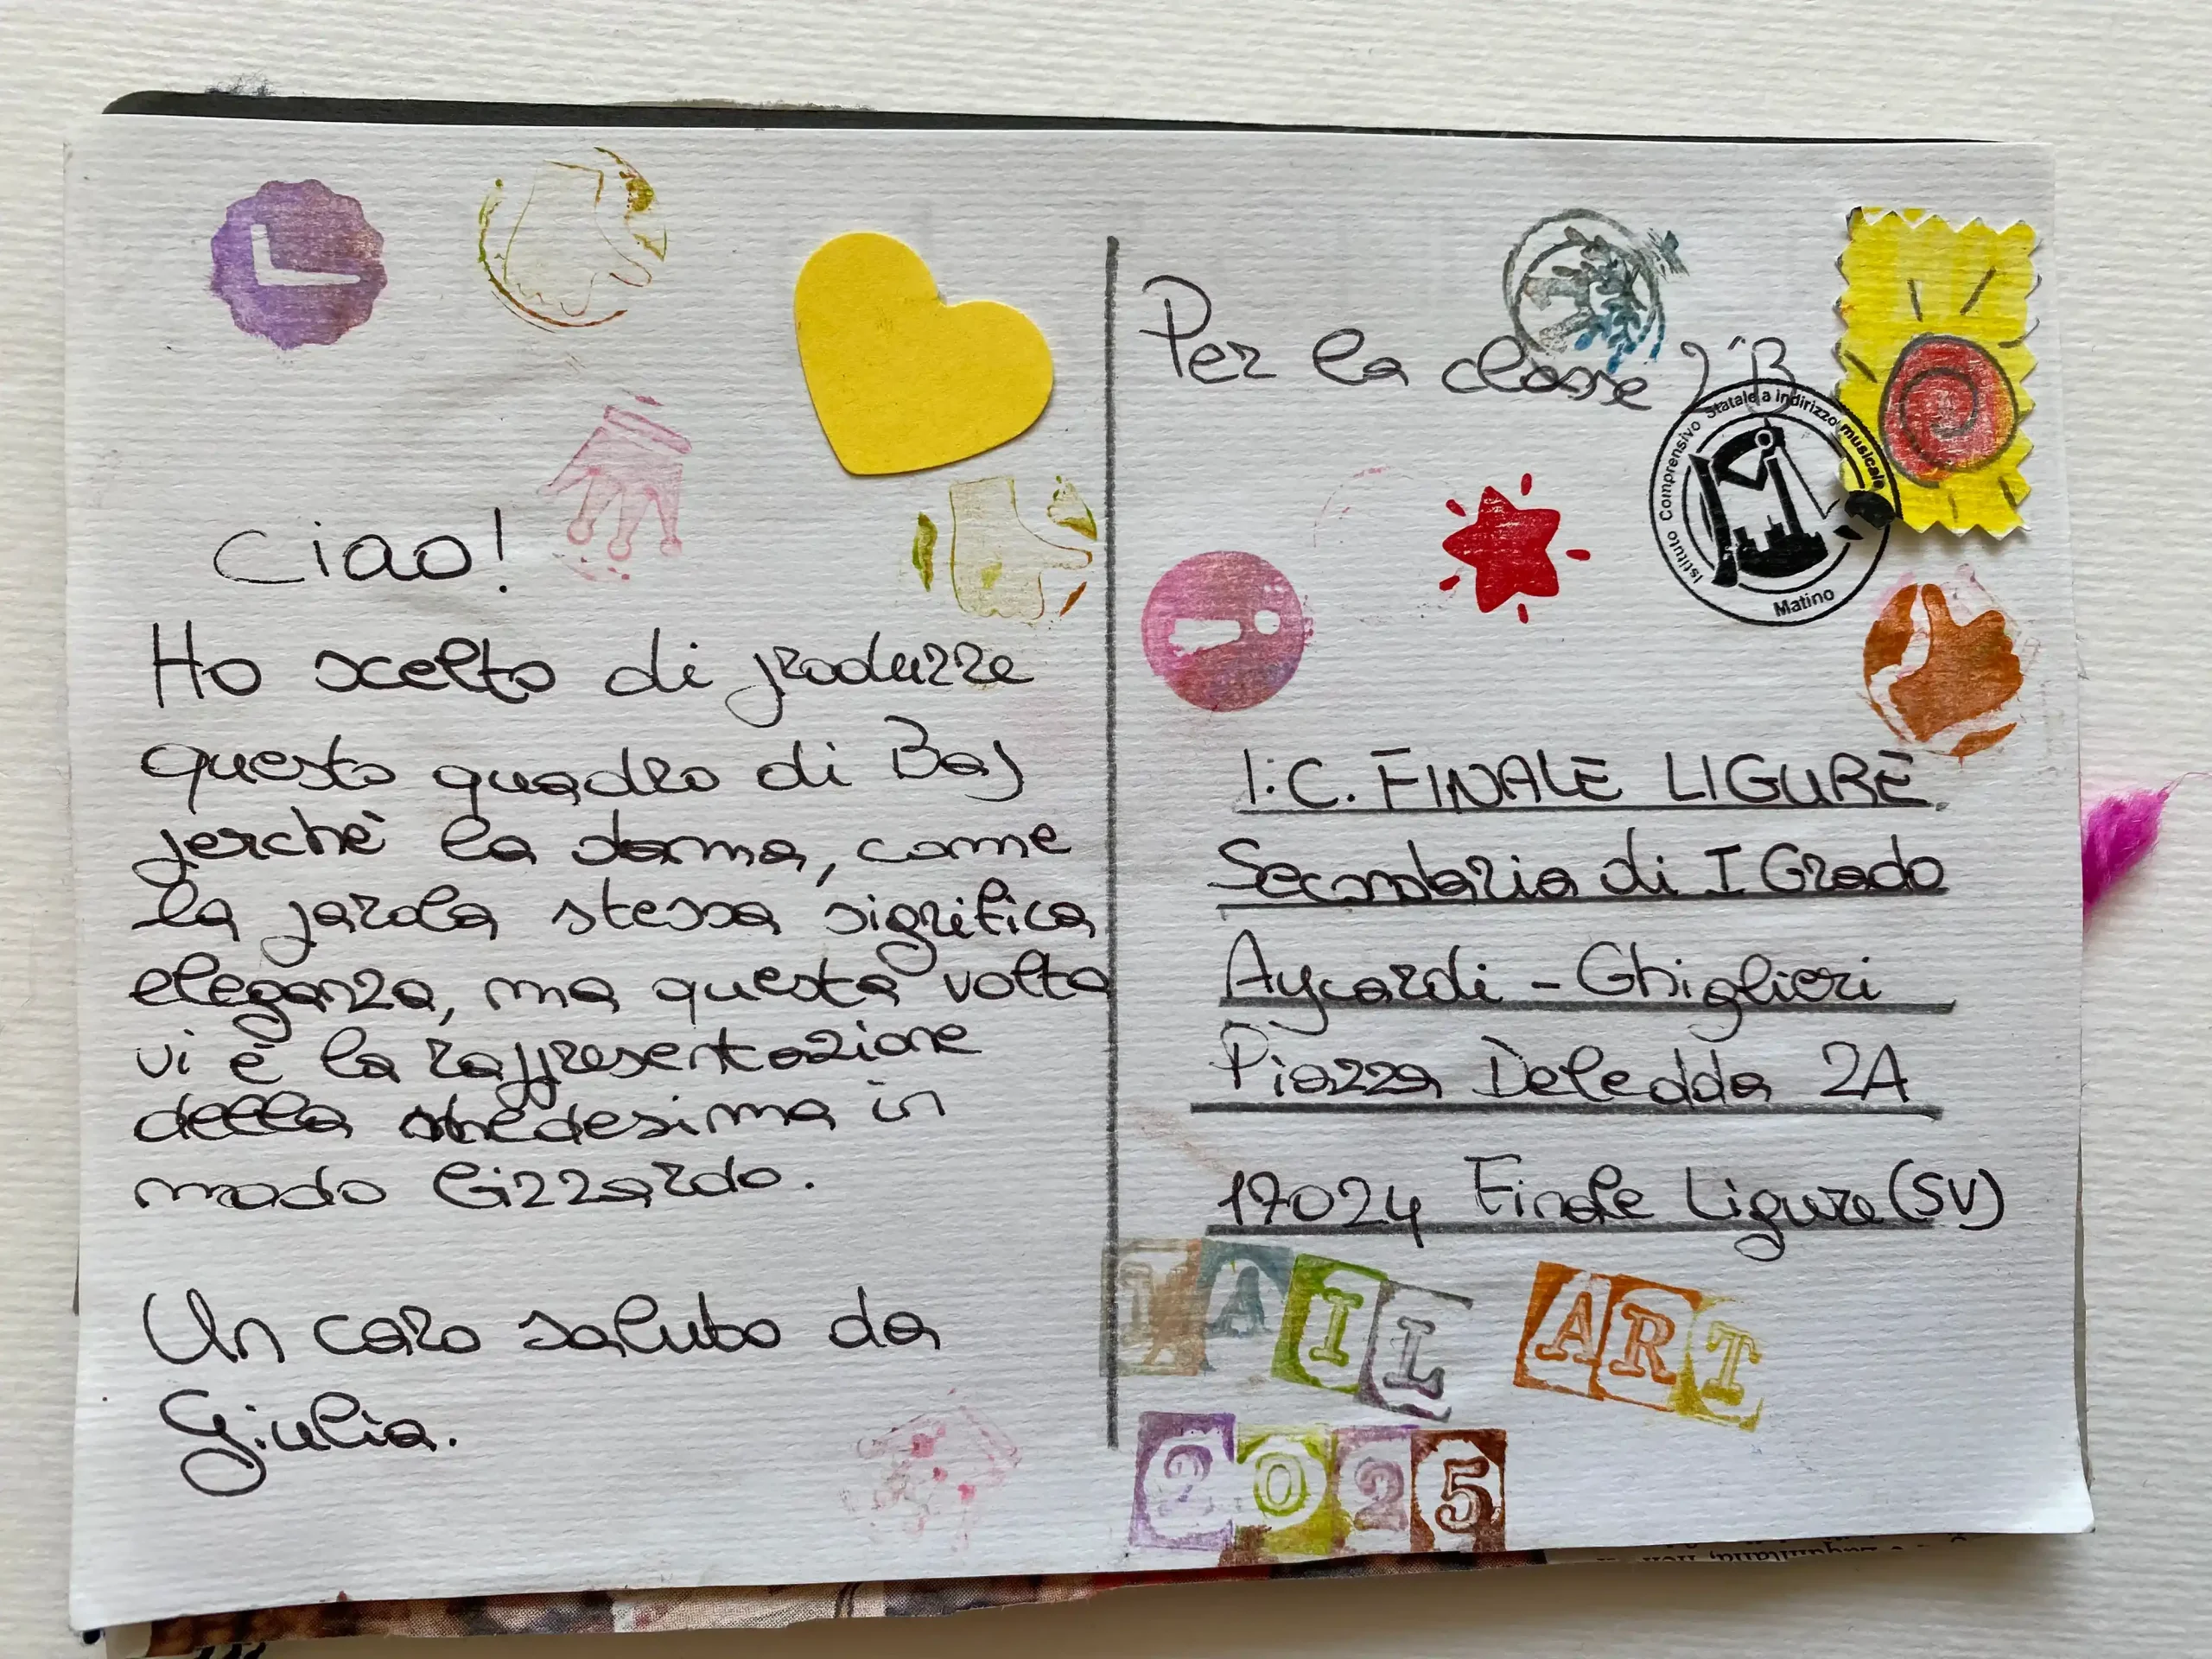 Ciao!
Ho scelto di produrre
questo quadro di Baj
perchè la dama, come
la parola stessa significa
eleganza, ma questa volta
vi è la rappresentazione
della medesima in
modo bizzardo.
Un caro saluto da
Giulia.
Per la classe 2ªB
Istituto Comprensivo Statale a indirizzo musicale
Matino
I.C. FINALE LIGURE
Secondaria di I Grado
Aycardi - Ghiglieri
Piazza Deledda 2A
17024 Finale Ligure (SV)
MAIL ART
2025